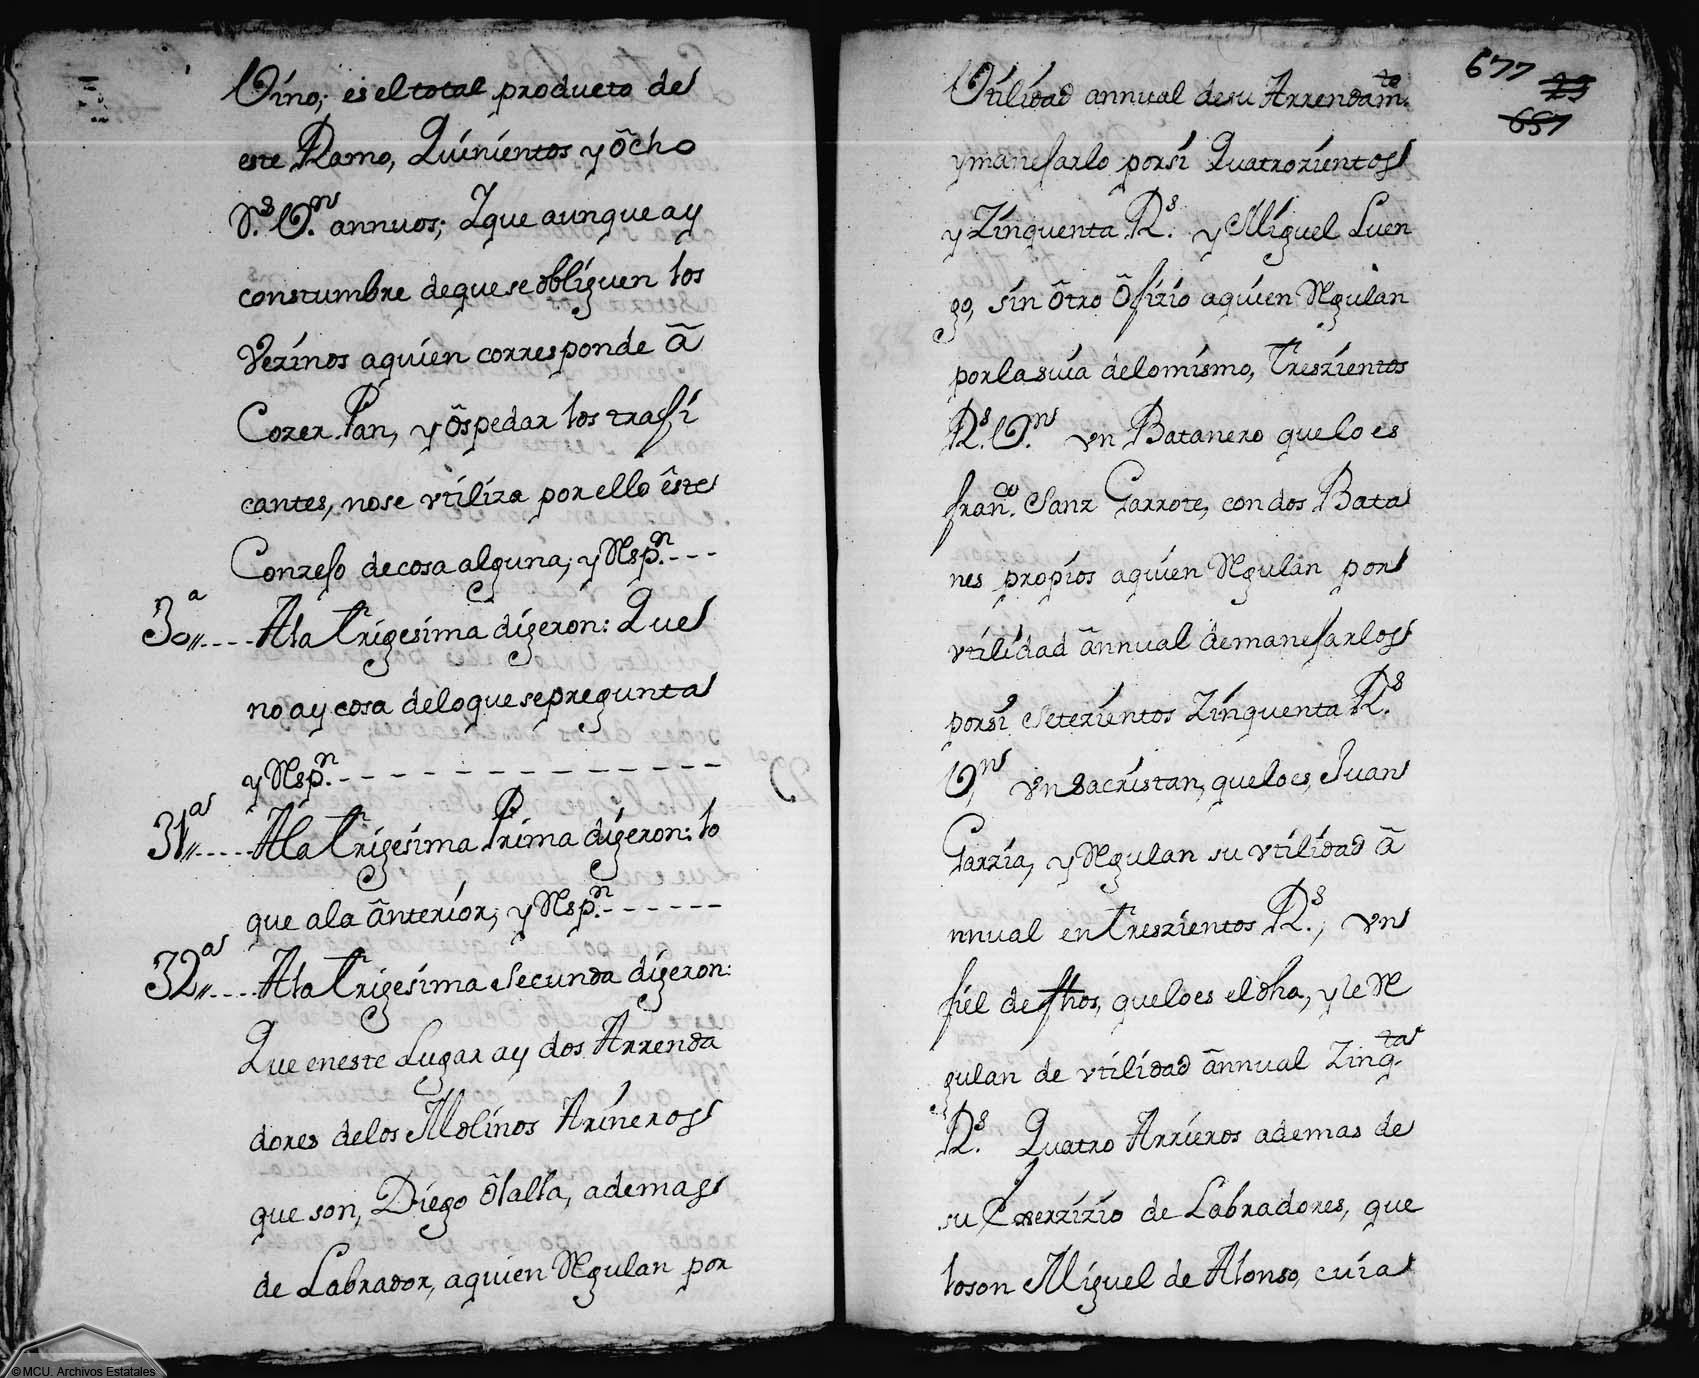 Vino; es el total producto de
este Ramo, Quinientos y ôcho
Rˢ. Vⁿ. annuos; Y que aunque ay
constumbre de que se obliguen los
Vezinos a quien corresponde â
Cozer Pan, y ôspedar los trafi
cantes, no se vtiliza por ello êste
Conzejo de cosa alguna; y Respⁿ.---
30ª,,.... A la Trigesima digeron: Que
no ay cosa de lo que se pregunta
y Respⁿ.--------------
31ª,,.... A la Trigesima Prima digeron: lo
que a la ânterior; y Respⁿ.------
32ª,,.... A la Trigesima Secunda digeron:
Que en este Lugar ay dos Arrenda
dores de los Molinos Arineros
que son, Diego ôlalla, ademas
de Labrador, a quien Regulan por
677 23
657
Vtilidad annual de su Arrendamᵗᵒ.
y manejarlo por si Quatrozientos
y Zinquenta Rˢ. y Miguel Luen
go, sin ôtro ôfizio a quien Regulan
por la suia de lo mismo, Treszientos
Rˢ. Vⁿ. vn Batanero que lo es
franᶜᵒ. Sanz Garrote, con dos Bata
nes propios a quien Regulan por
vtilidad ânnual de manejarlos
por si Setezientos Zinquenta Rˢ.
Vⁿ. vn sacristan, que lo es, Juan
Garzia, y Regulan su vtilidad â
nnual en treszientos Rˢ.; vn
fiel de fhos, que lo es el dho, y le Re
gulan de vtilidad ânnual Zinqᵗᵃ.
Rˢ. Quatro Arrieros ademas de
su Exerzizio de Labradores, que
lo son Miguel de Alonso, cuia
©MCU. Archivos Estatales